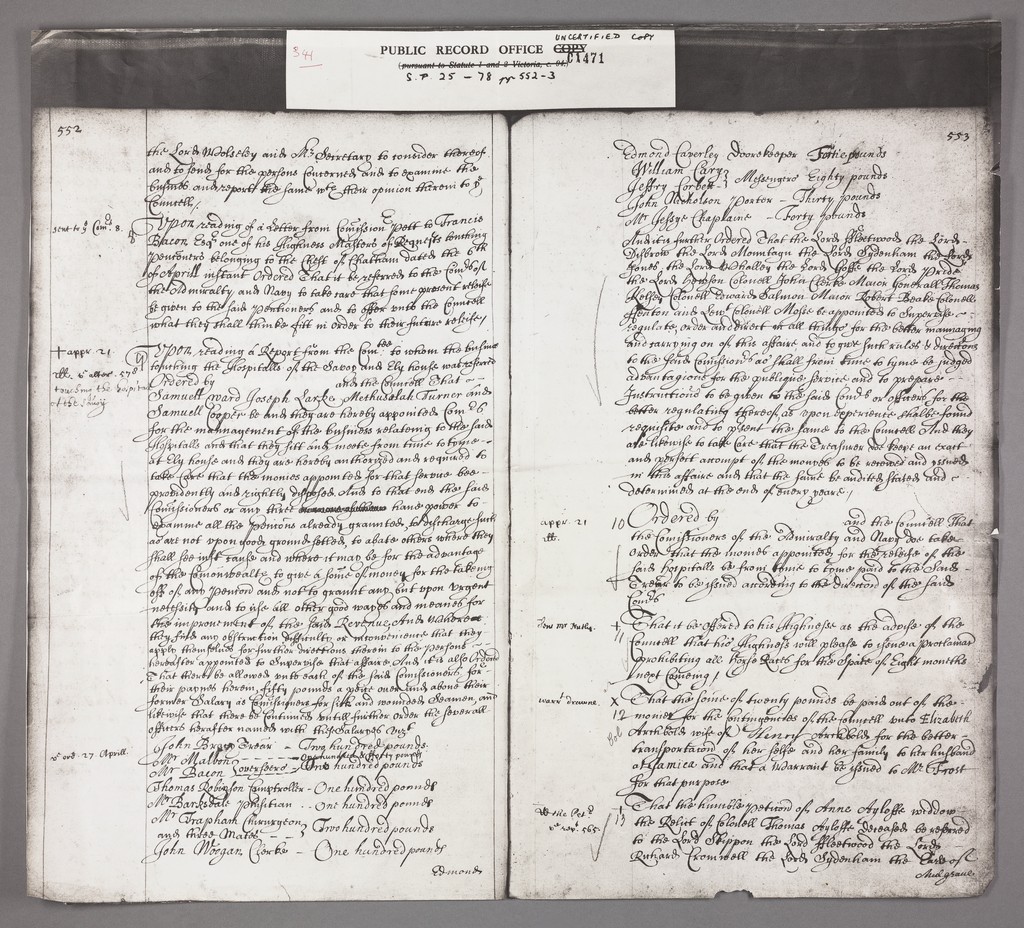 UNCERTIFIED COPY
341
PUBLIC RECORD OFFICE COPY
C1471
(pursuant to Statute 1 and 2 Victoria, c. 94.)
S.P. 25 - 78 pp 552-3
552
the Lord Wolseley and Mr Secretary to consider thereof
and to send for the persons Concerned and to examine the
busines and report the same wth their opinion therein to ye
Councell /
sent to ye Comrs. 8.
8
Vpon reading of a Letter from Comission Pett to Francis
Bacon Esqr one of his Highness Masters of Requests touching
Pentioners belonging to the Chest of Chatham dated the 6th
of Aprill instant Ordered That it be referred to the Comrs of
the Admiralty and Navy to take care that some present releife
be given to the said Pentioners and to offer vnto the Councell
what they shall thinke fitt in order to their future releife /
+ appr. 21.
touching the hospitals
of the Savoy
9
Vpon reading a Report from the Comtee to whom the busines
touching the Hospitalls of the Savoy and Ely house was referred
Ordered by and the Councell That
Samuell Ward Joseph Larke Methuselah Turner and
Samuell Cooper be and they are hereby appointed Comrs
for the management of the business relateing to the said
Hospitalls and that they sitt and meete from time to tyme
at Ely house and they are hereby authorized and required to
take Care that the monies appointed for that service bee
providently and rightly disposed And to that end the said
Comissioners or any three haue power to
examine all the Pentions already graunted to discharge such
as are not vpon good ground setled, to abate others where they
shall see iust cause and where it may be for the advantage
of the Comonwealth to give a some of money for the takeing
off of any Pention and not to graunt any but vpon vrgent
necessity and to vse all other good wayes and meanes for
the improuement of the said Revenue And where
they find any obstruction difficulty or inconvenience that they
apply themselues for further directions therein to the persons
hereafter appointed to Supervise that affaire And it is also Ordered
That there be allowed vnto each of the said Comissioners for
their paynes herein fifty pounds a peice over and aboue their
former Salary as Comissioners for sick and wounded Seamen, and
likewise that there be Continued vntill further order the severall
officers hereafter named with these Salaryes Vizt
v ord 27 Aprill.
John Brace Trear - Two hundred pounds.
Mr Malbon
Mr Bacon Overseers - One hundred pounds
Thomas Robinson Comptroller - One hundred pounds
Mr Barksdale Phisitian .. One hundred pounds
Mr Trapham Chirurgeon
and three Mates - Two hundred pounds
John Woogan Clerke - One hundred pounds
Edmond
553
Edmond Caverley Doorekeeper Fortie pounds
William Cary
Jeffry Corbett Messengers Eighty pounds
John Nicholson Porter - Thirty pounds
Mr Jessye Chaplaine - Forty pounds
And it is further Ordered That the Lord Fleetwood the Lord
Disbrow the Lord Mountagu the Lord Sydenham the Lord
Jones, the Lord Whalley the Lord Goffe the Lord Pride
the Lord Hewson Colonell John Clerke Maior Generall Thomas
Kelsey Colonell Edward Salmon Maior Robert Beake Colonell
Fenton and Leut Colonell Mosse be appointed to Supervise
regulate order and direct in all things for the better mannaging
and carrying on of this affaire and to give such rules & directions
to the said Comissionrs as shall from time to tyme be judged
advantagious for the publique service and to prepare
Instructions to be given to the said Comrs or officers for the
better regulating thereof as vpon experience shalbe found
requisite and to present the same to the Councell And they
are likewise to take Care that the Treasurer do keepe an exact
and perfect accompt of the moneys to be received and issued
in this affaire and that the same be audited stated and
determined at the end of euery yeare /
appr. 21
10
Ordered by and the Councell That
the Comissioners of the Admiralty and Navy doe take
Order that the monies appointed for the releife of the
said hospitalls be from time to tyme paid to the said
Trear to be issued according to the direction of the said
Comrs
11
That it be offered to his Highnesse as the advise of the
Councell that his Highness will please to issue a Proclamat
prohibiting all Horse Races for the space of Eight moneths
next comeing /
warrt drawne. x
12
That the some of twenty pounds be paid out of the
monies for the contingencies of the Councell vnto Elizabeth
Archibold wife of Henry Archibold for the better
transportation of her selfe and her family to her husband
at Jamica and that a Warrant be issued to Mr Frost
for that purpose
13
That the humble Peticion of Anne Ayloffe widdow
the Relict of Colonell Thomas Ayloffe deceased be referred
to the Lord Skippon the Lord Fleetwood the Lord
Richard Cromwell the Lord Sydenham the Earle of
Mulgraue